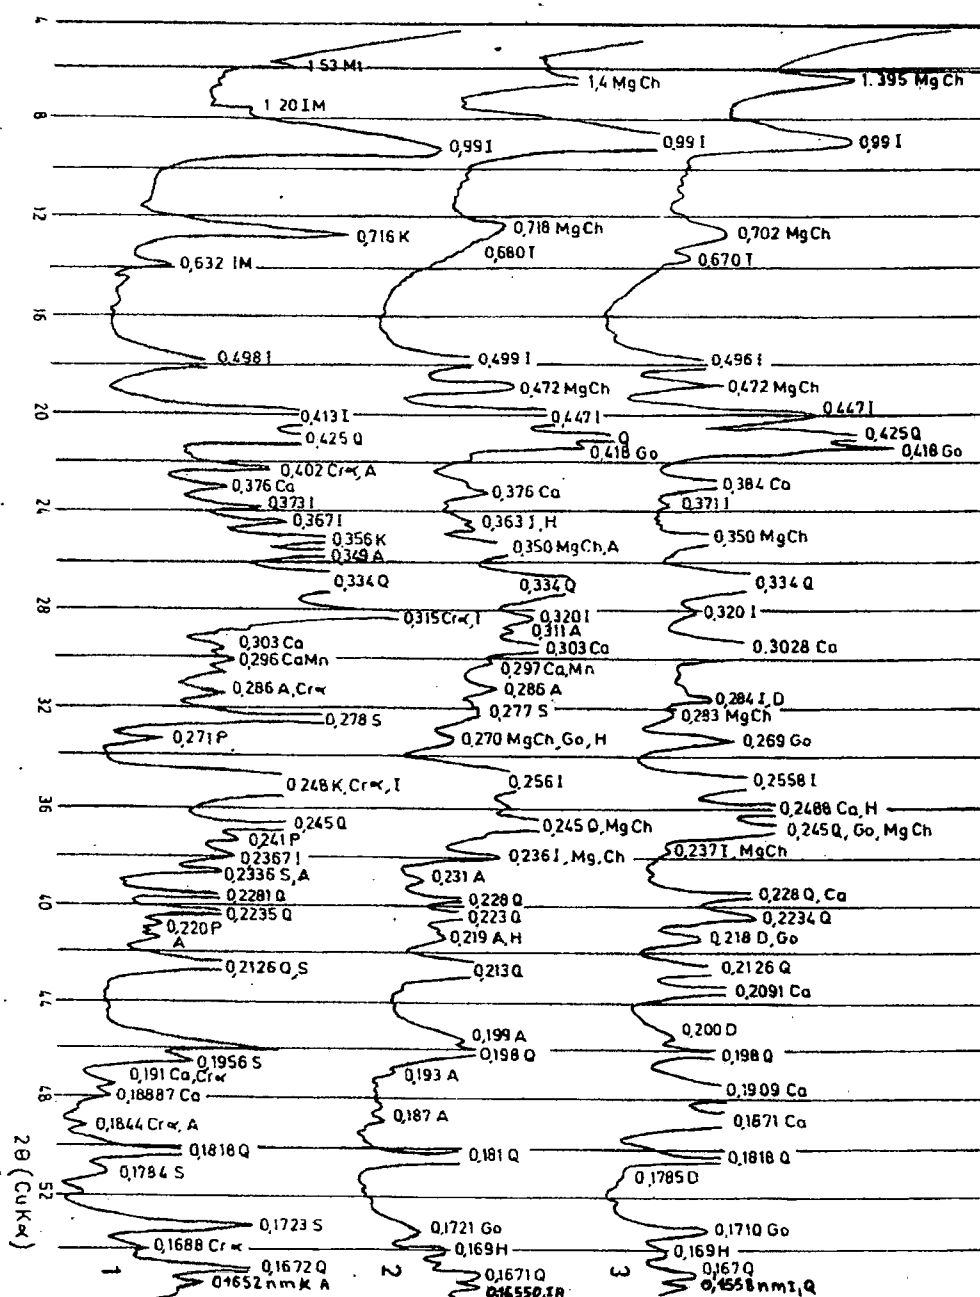 4
8
12
16
20
24
28
32
36
40
44
48
52
2θ (CuKα)
1.20 IM
0,99 I
0,716 K
0,632 IM
0,498 I
0,413 I
0,425 Q
0,402 Crα, A
0,376 Ca
0,373 I
0,367 I
0,356 K
0,349 A
0,334 Q
0,315 Crα, I
0,303 Ca
0,296 CaMn
0,286 A, Crα
0,278 S
0,271 P
0,248 K, Crα, I
0,245 Q
0,241 P
0,2367 I
0,2336 S, A
0,2281 Q
0,2235 Q
0,220 P
A
0,2126 Q, S
0,1956 S
0,191 Ca, Crα
0,18887 Ca
0,1844 Crα, A
0,1818 Q
0,1784 S
0,1723 S
0,1688 Crα
0,1672 Q
0,1652 nm K A
1
1,4 MgCh
0,99 I
0,718 MgCh
0,680 T
0,499 I
0,472 MgCh
0,447 I
Q
0,418 Go
0,376 Ca
0,363 I, H
0,350 MgCh, A
0,334 Q
0,320 I
0,311 A
0,303 Ca
0,297 Ca, Mn
0,286 A
0,277 S
0,270 MgCh, Go, H
0,256 I
0,245 Q, MgCh
0,236 I, Mg, Ch
0,231 A
0,228 Q
0,223 Q
0,219 A, H
0,213 Q
0,199 A
0,198 Q
0,193 A
0,187 A
0,181 Q
0,1721 Go
0,169 H
0,1671 Q
2
1.395 MgCh
0,99 I
0,702 MgCh
0,670 T
0,496 I
0,472 MgCh
0,447 I
0,425 Q
0,418 Go
0,384 Ca
0,371 I
0,350 MgCh
0,334 Q
0,320 I
0.3028 Ca
0,284 I, D
0,283 MgCh
0,269 Go
0,2558 I
0,2488 Ca, H
0,245 Q, Go, MgCh
0,237 I, MgCh
0,228 Q, Ca
0,2234 Q
0,218 D, Go
0,2126 Q
0,2091 Ca
0,200 D
0,198 Q
0,1909 Ca
0,1871 Ca
0,1818 Q
0,1785 D
0,1710 Go
0,169 H
0,167 Q
0,1558 nm I, Q
3